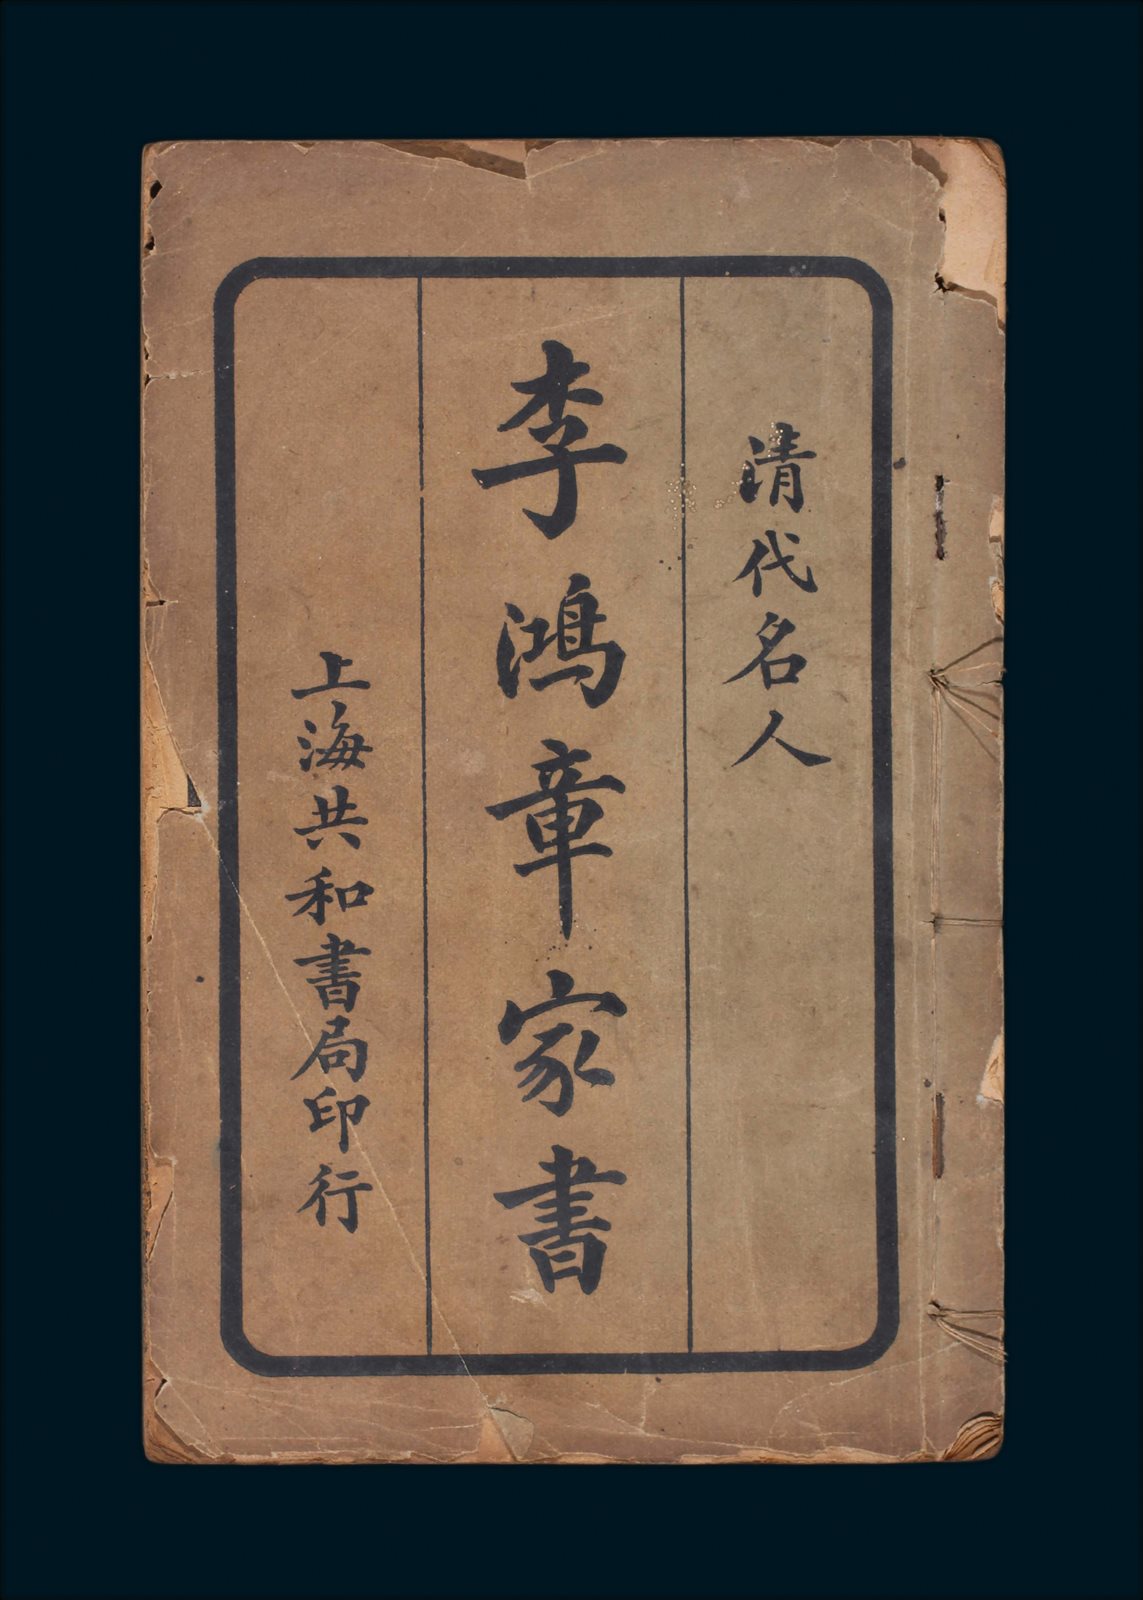 清代名人
李鴻章家書
上海共和書局印行